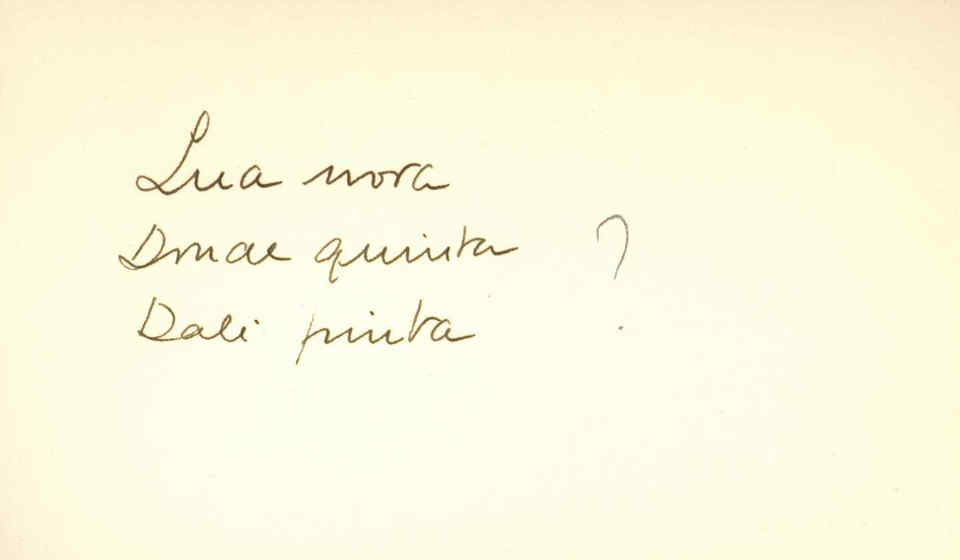 Lua nova
Donde quinta ?
Dali pinta